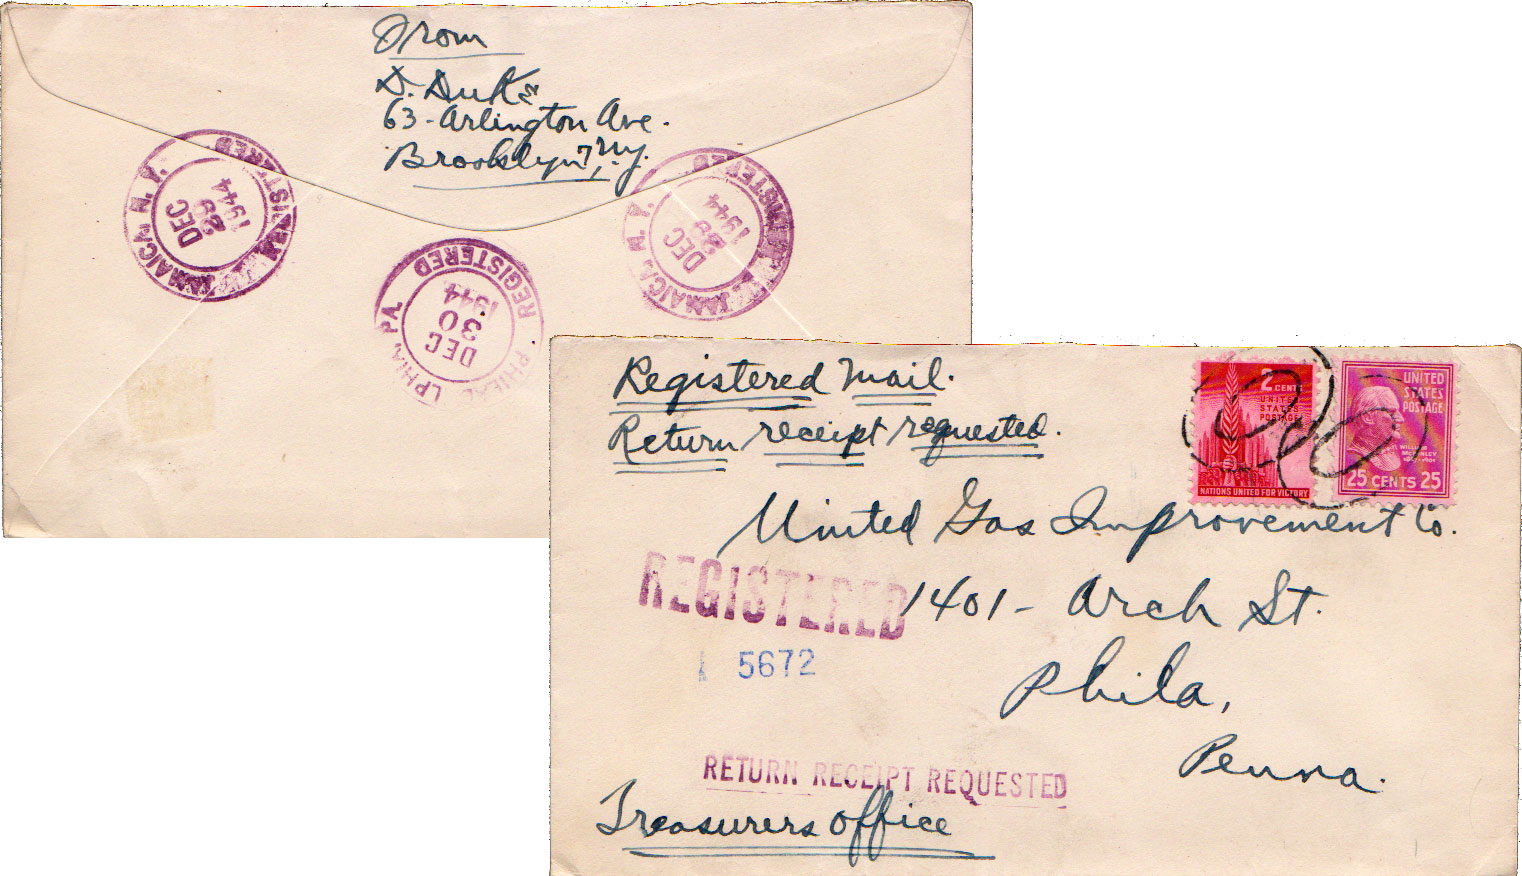 From
D. Duke
63 - Arlington Ave.
Brooklyn 7, N.Y.
JAMAICA, N.Y. REGISTERED
DEC
29
1944
JAMAICA, N.Y. REGISTERED
DEC
29
1944
PHILADELPHIA, PA. REGISTERED
DEC
30
1944
Registered Mail.
Return receipt requested.
2 CENTS
UNITED
STATES
POSTAGE
NATIONS UNITED FOR VICTORY
UNITED
STATES
POSTAGE
WILLIAM
McKINLEY
25 CENTS 25
United Gas Improvement Co.
REGISTERED
1401 - Arch St.
5672
Phila,
Penna.
RETURN RECEIPT REQUESTED
Treasurers office